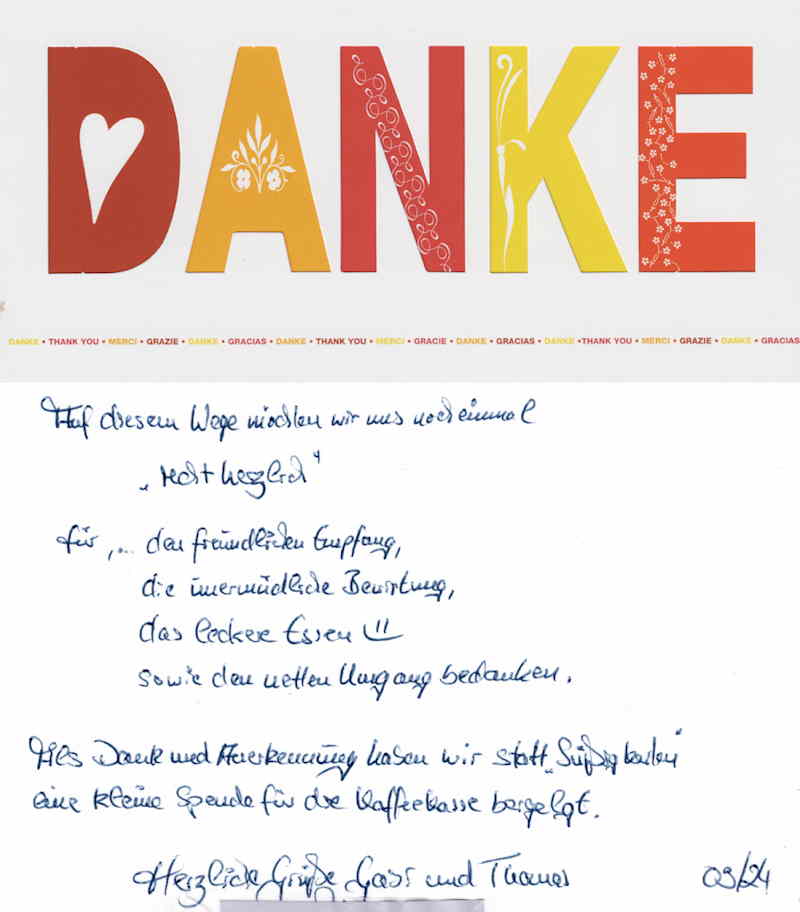 DANKE
DANKE • THANK YOU • MERCI • GRAZIE • DANKE • GRACIAS • DANKE • THANK YOU • MERCI • GRACIE • DANKE • GRACIAS • DANKE • THANK YOU • MERCI • GRAZIE • DANKE • GRACIAS
Auf diesem Wege möchten wir uns noch einmal
„recht herzlich"
für ,... den freundlichen Empfang,
die unermüdliche Bewirtung,
das leckere Essen
sowie den netten Umgang bedanken.
Als Dank und Anerkennung haben wir statt „Süßigkeiten"
eine kleine Spende für die Kaffeekasse beigelegt.
Herzliche Grüße Gabi und Thomas 03/24